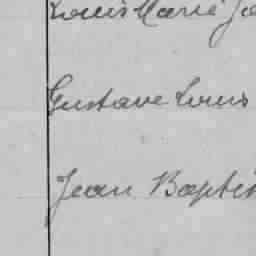 Louis Marie
Gustave Louis
Jean Baptis